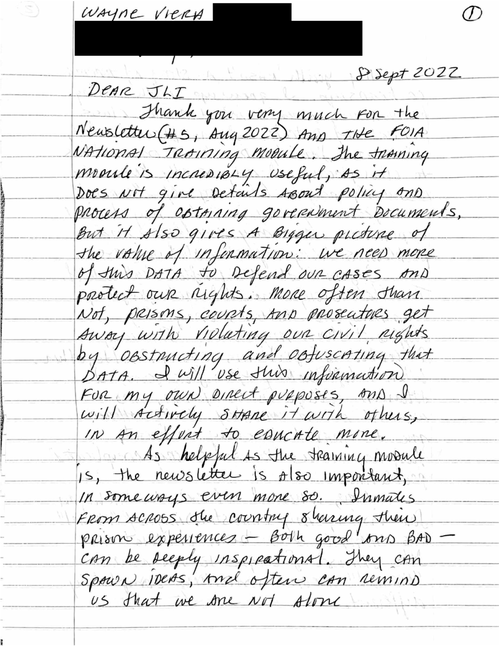 WAYNE VIERA
1
8 Sept 2022
DEAR JLI
Thank you very much FOR the
Newsletter (#5, Aug 2022) AND THE FOIA
NATIONAL TRAINING MODULE. The training
module is incredibly useful, as it
Does Not give Details About policy AND
process of obtaining government Documents,
But it Also gives A Bigger picture of
the value of information: we need more
of this DATA to Defend our cases AND
protect our rights. More often than
Not, prisons, courts, AND prosecutors get
AWAY with violating our civil rights
by obstructing and obfuscating that
DATA. I will use this information
FOR my own Direct purposes, AND I
will Actively SHARE it with others,
IN AN effort to educate more.
As helpful AS the training module
is, the newsletter is Also important,
in some ways even more so. Inmates
FROM ACROSS the country sharing their
prison experiences - Both good AND BAD -
CAN be Deeply inspirational. They CAN
SPAWN ideas, AND often CAN remind
us that we Are Not Alone